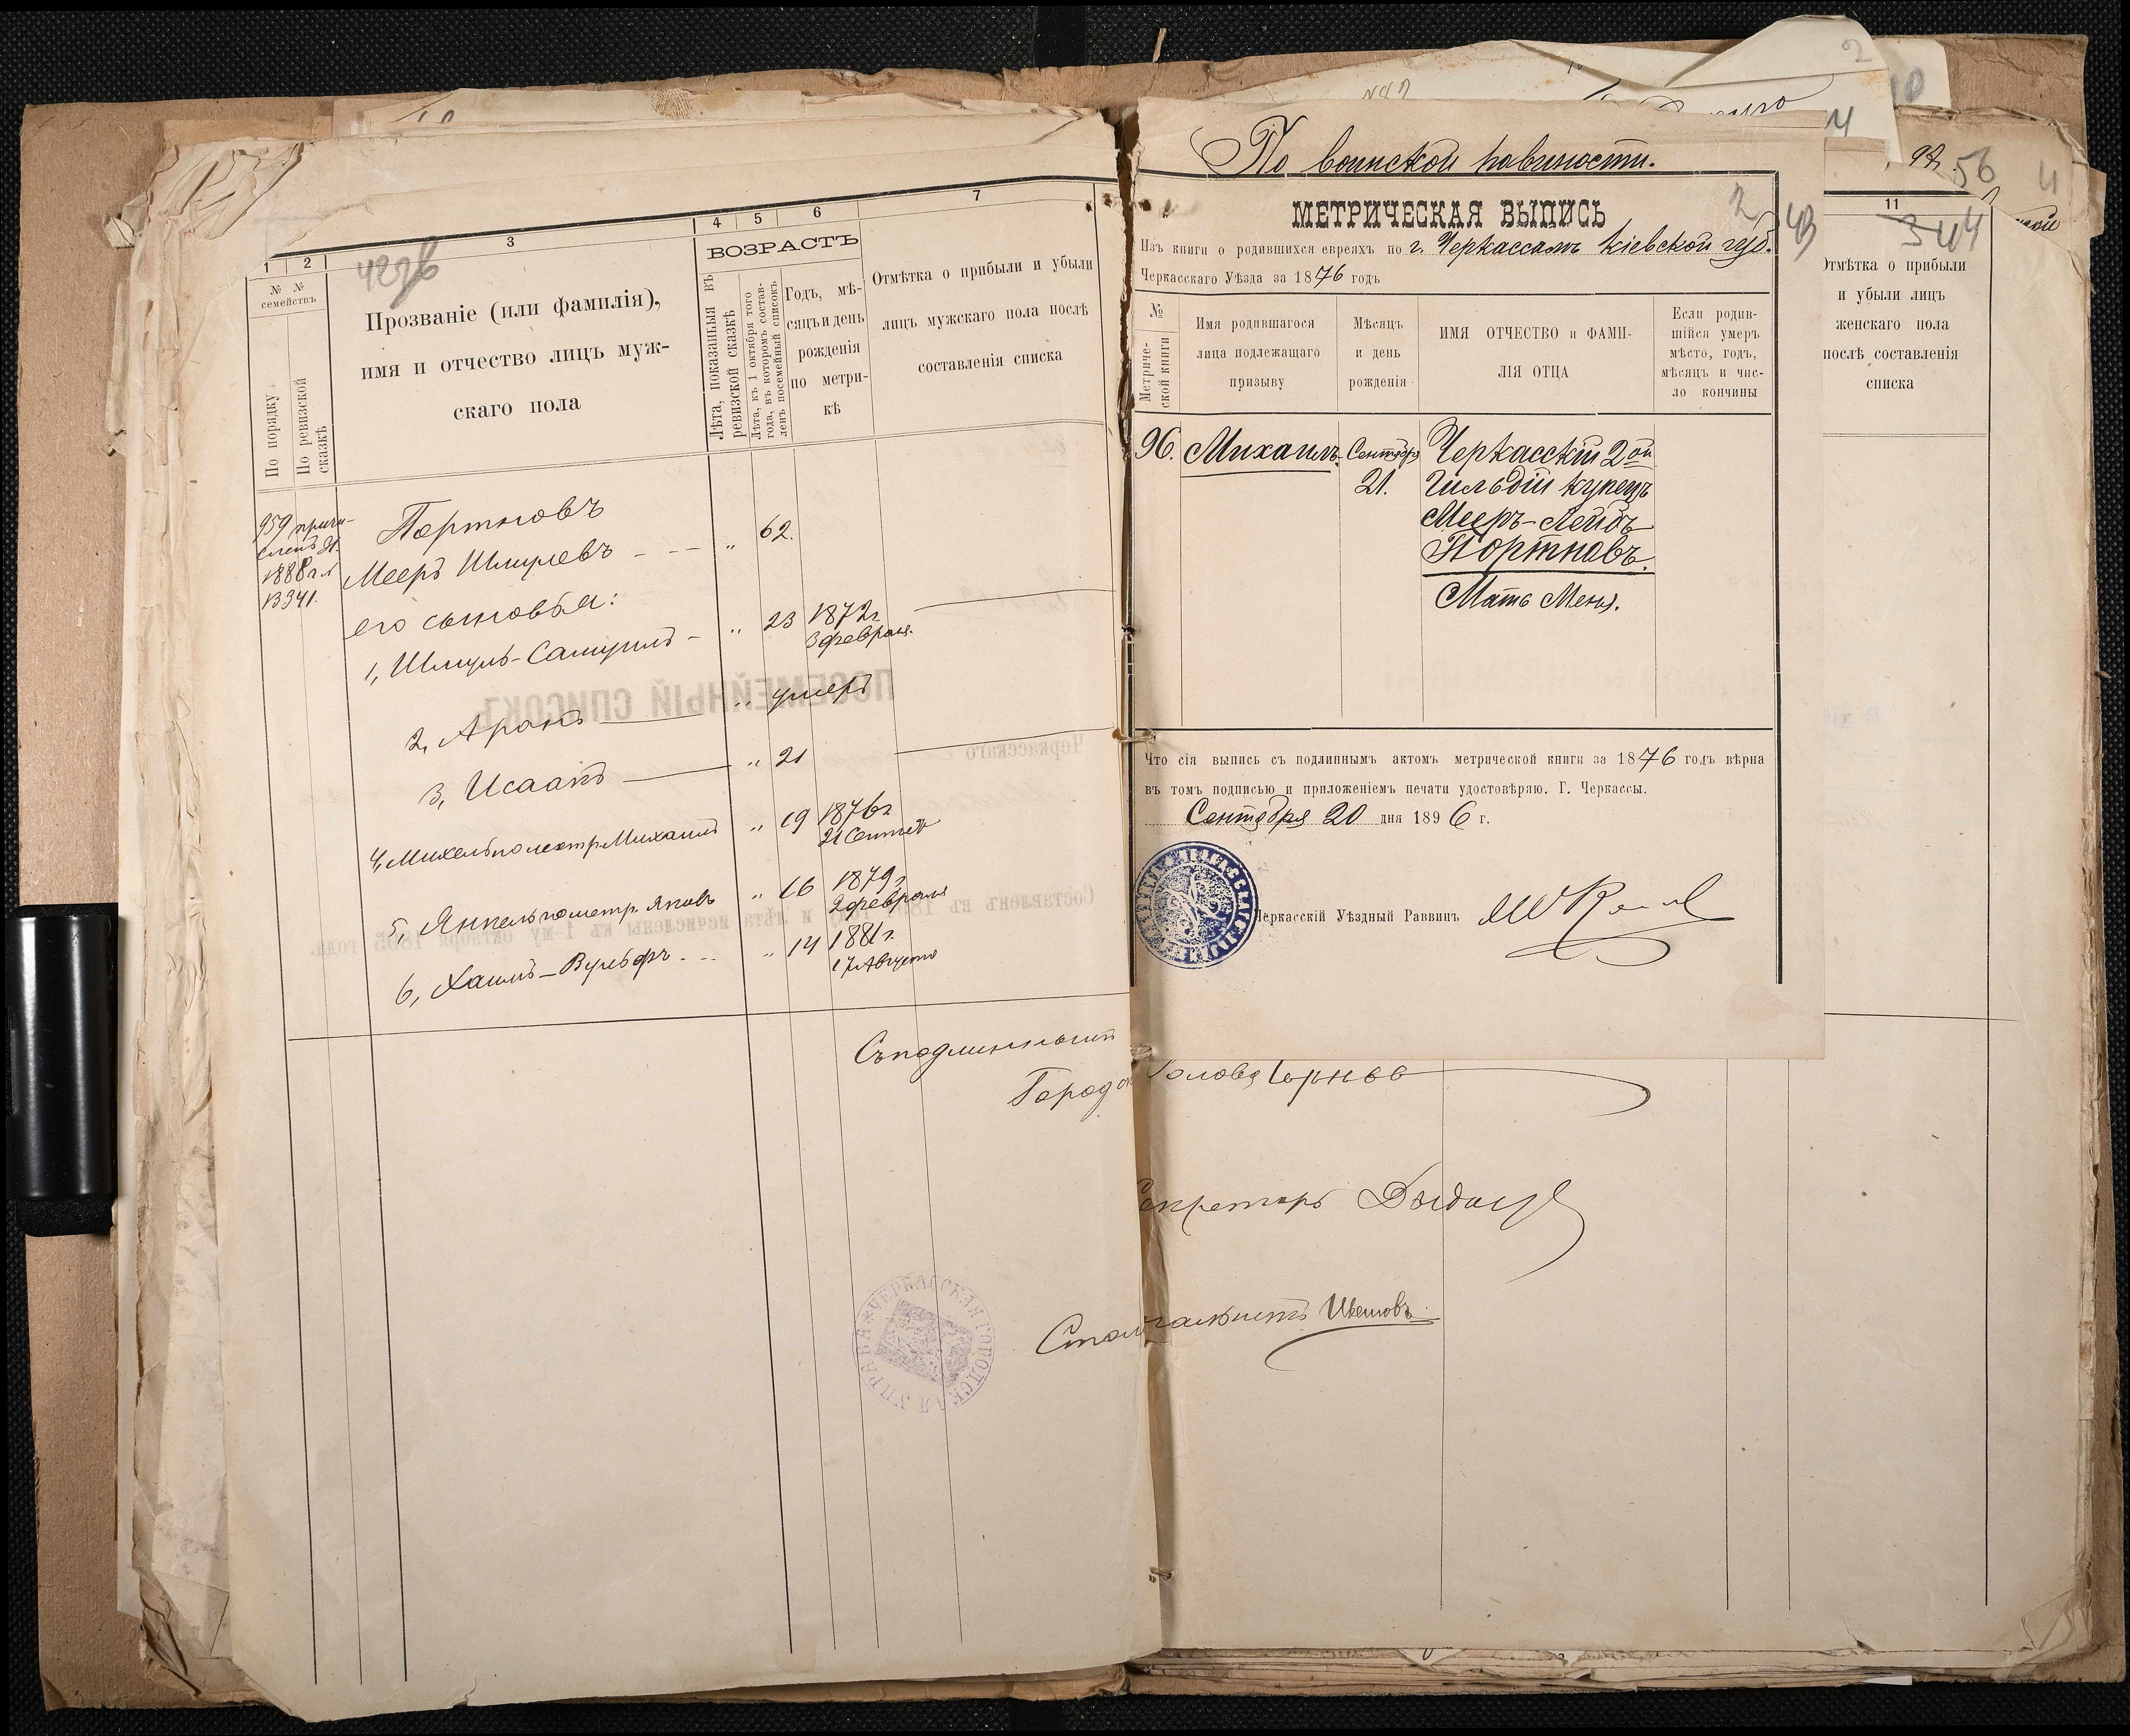 1
2
3
4
5
6
7
№ №
семействъ
По порядку
По ревизской
сказкѣ
Прозваніе (или фамилія),
имя и отчество лицъ муж-
скаго пола
ВОЗРАСТЪ
Лѣта, показанныя въ
ревизской сказкѣ
Лѣта, къ 1 октября того
года, въ которомъ состав-
ленъ посемейный списокъ
Годъ, мѣ-
сяцъ и день
рожденія
по метри-
кѣ
Отмѣтка о прибыли и убыли
лицъ мужскаго пола послѣ
составленія списка
959 причи-
сленъ
1888 г.
Портновъ
Мееръ Шмулевъ - - - „ 62.
его сыновья:
1, Шмуль-Самуилъ - „ 23 1872 г.
3 февраля.
2, Аронъ — „ умеръ
3, Исаакъ — „ 21
4, Михель по метр. Михаилъ „ 19 1876 г.
21 Сентяб
5, Янкель по метр. Яковъ „ 16 1879 г.
2 февраля
6, Хаимъ-Вульфъ „ 14 1881 г.
17 Августа
Съ подлиннымъ
Город Голова
Секретарь
Столоначальникъ
ЧЕРКАССКАЯ ГОРОДСКАЯ УПРАВА
По воинской повиности.
МЕТРИЧЕСКАЯ ВЫПИСЬ
2
43
Изъ книги о родившихся евреяхъ по г. Черкассамъ Кіевской губ.
Черкасскаго Уѣзда за 1876 годъ
№
Метриче-
ской книги
Имя родившагося
лица подлежащаго
призыву
Мѣсяцъ
и день
рожденія
ИМЯ ОТЧЕСТВО и ФАМИ-
ЛІЯ ОТЦА
Если родив-
шійся умеръ
мѣсто, годъ,
мѣсяцъ и чис-
ло кончины
96. Михаилъ. Сентября Черкасскій 2ой
21. Гильдіи купецъ
Мееръ-Лейбъ
Портновъ.
Мать Меня.
Что сія выпись съ подлиннымъ актомъ метрической книги за 1876 годъ вѣрна
въ томъ подписью и приложеніемъ печати удостовѣряю. Г. Черкассы.
Сентября 20 дня 1896 г.
Черкасскій Уѣздный Раввинъ
56
11
344
Отмѣтка о прибыли
и убыли лицъ
женскаго пола
послѣ составленія
списка